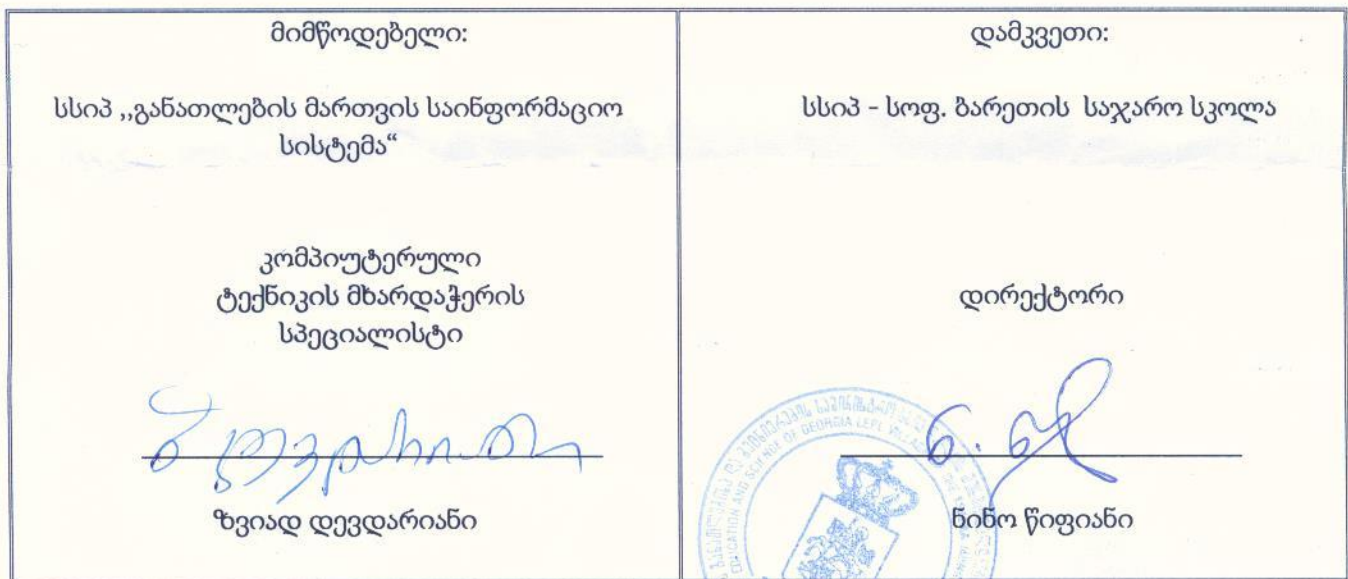 მიმწოდებელი:
სსიპ ,,განათლების მართვის საინფორმაციო
სისტემა“
კომპიუტერული
ტექნიკის მხარდაჭერის
სპეციალისტი
ზვიად დევდარიანი
დამკვეთი:
სსიპ - სოფ. ბარეთის საჯარო სკოლა
დირექტორი
ნინო წიფიანი
EDUCATION AND SCIENCE OF GEORGIA LEPL